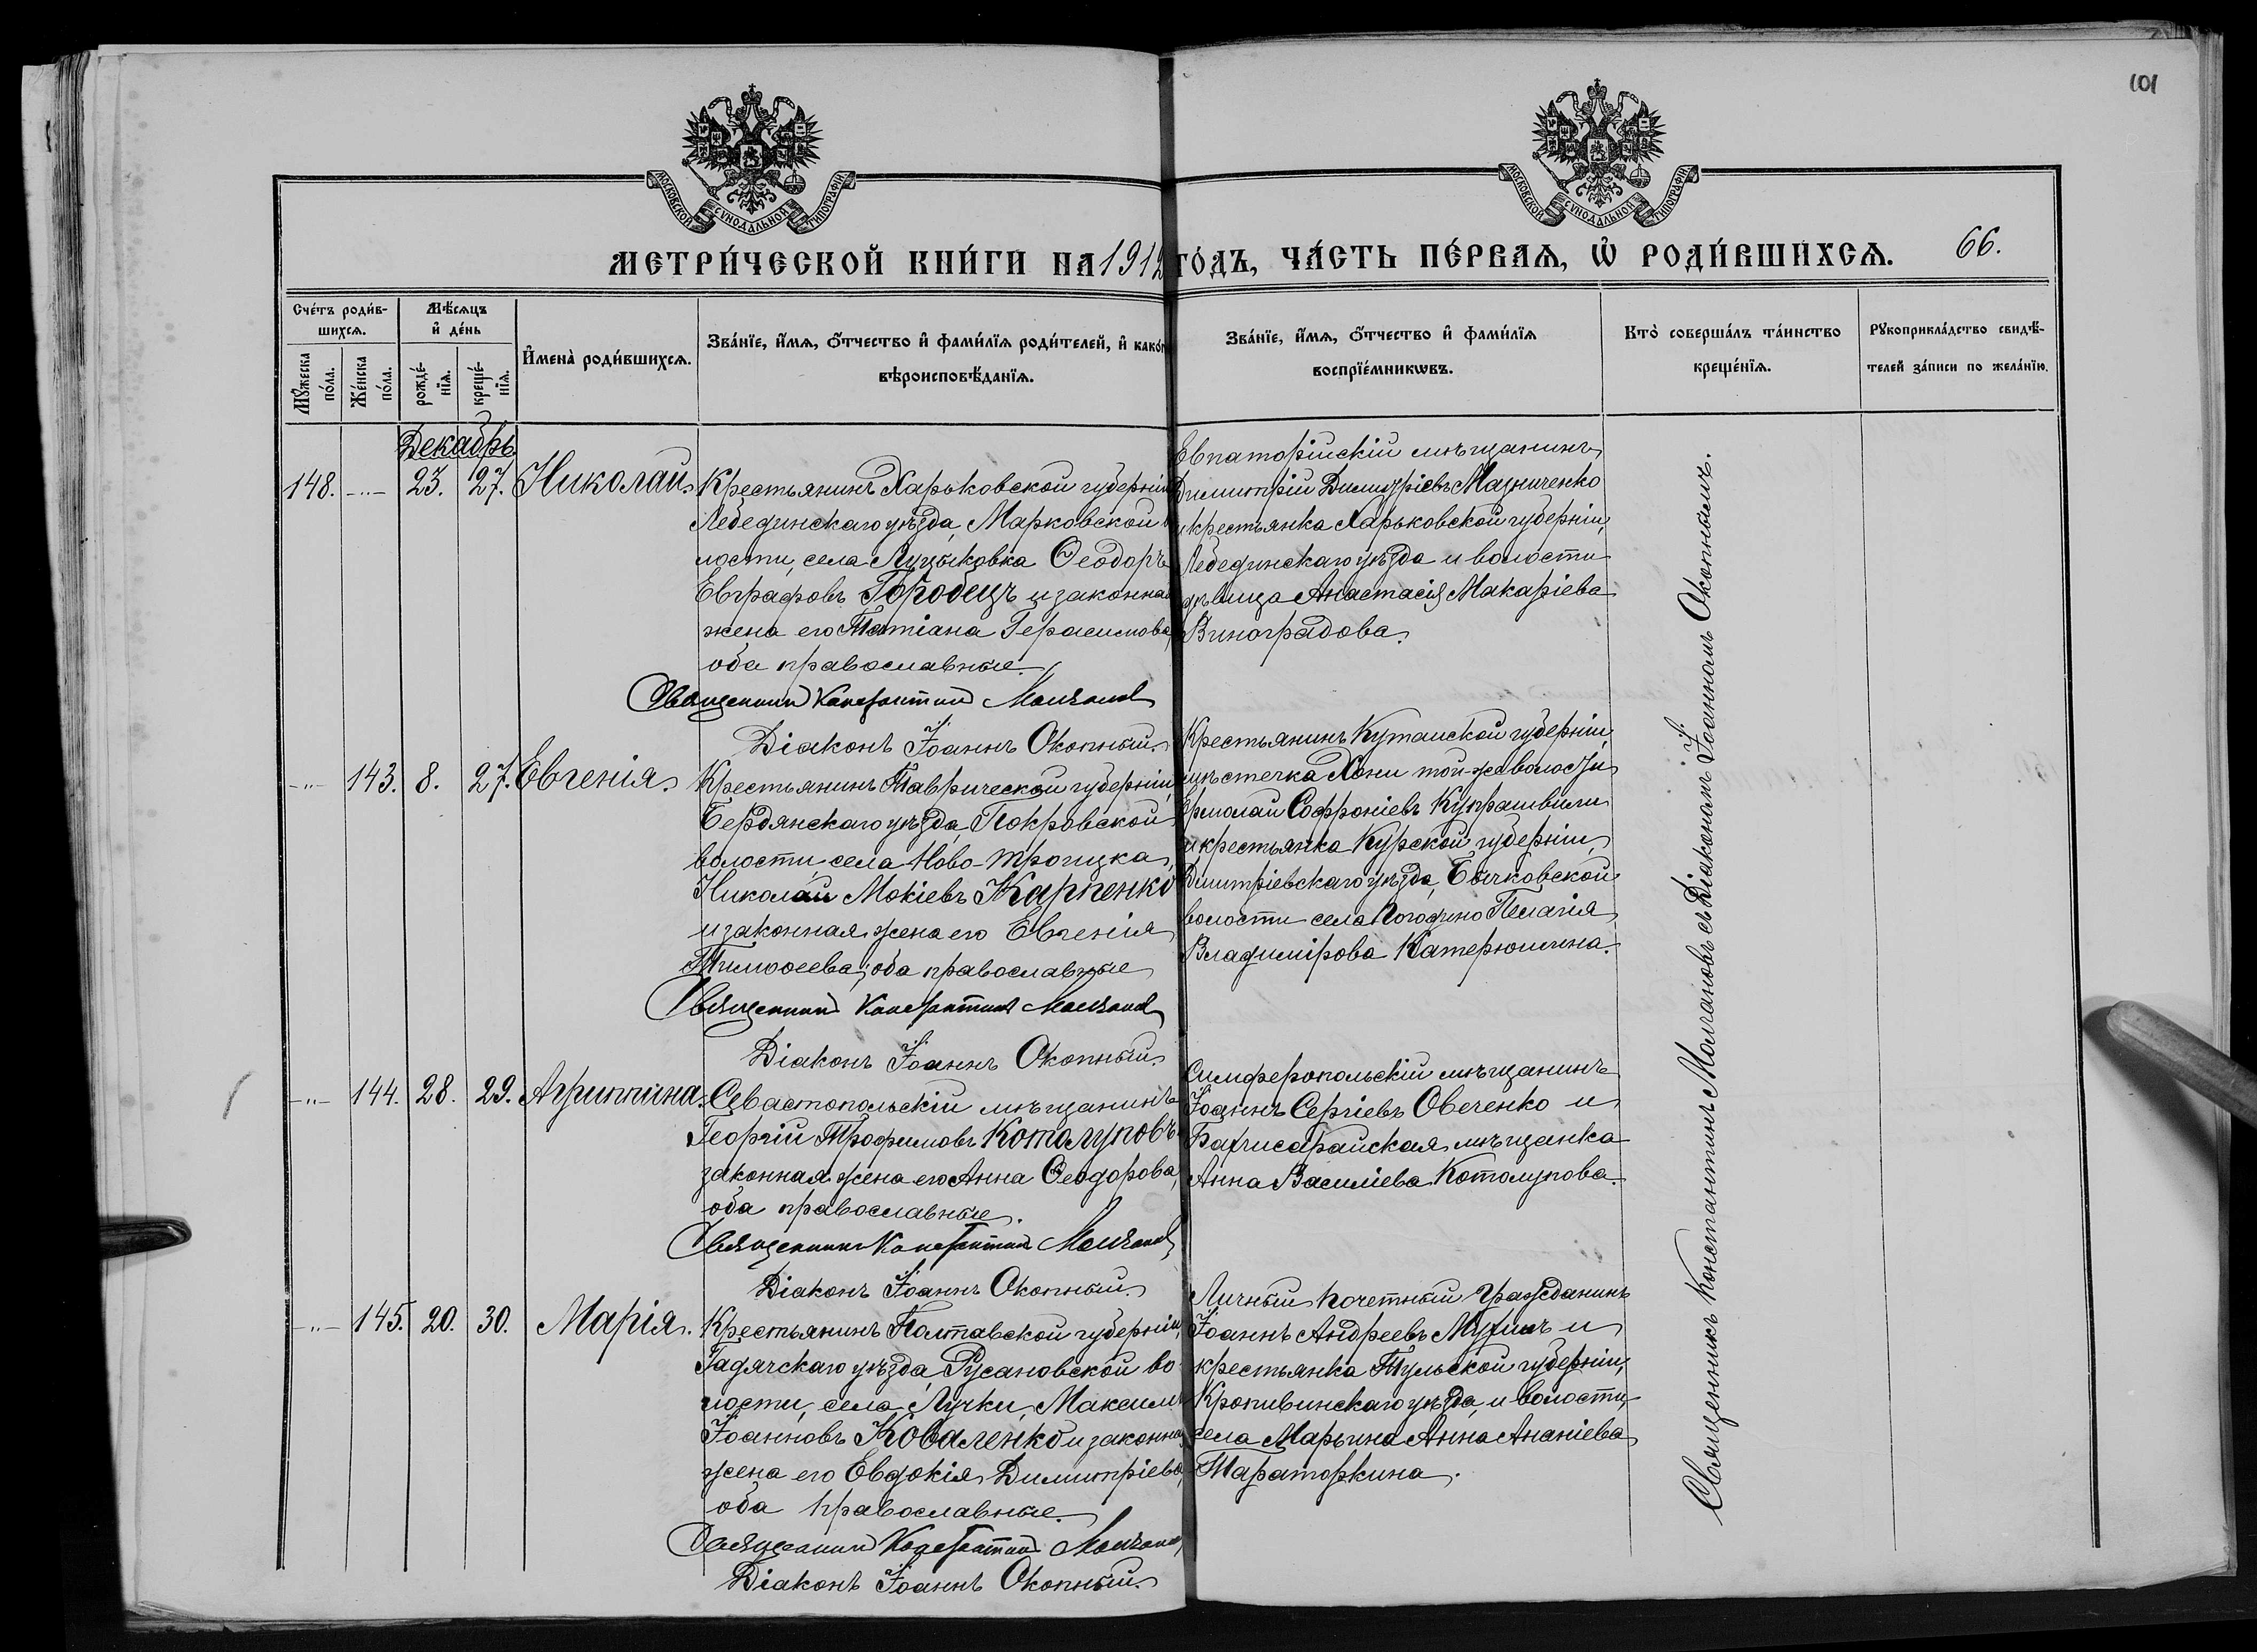 101
МОСКОВСКОЙ СѴНОДАЛЬНОЙ ТИПОГРАФІИ
МОСКОВСКОЙ СѴНОДАЛЬНОЙ ТИПОГРАФІИ
МЕТРИ́ЧЕСКОЙ КНИ́ГИ НА 1912 ГО́ДЪ, ЧА́СТЬ ПЕ́РВАѦ, Ѽ РОДИ́ВШИХСѦ. 66.
Сче́тъ роди́в-
шихсѧ.
Мꙋ́жеска
по́ла.
Же́нска
по́ла.
Мѣ́сѧцъ
и҆ де́нь
рожде́-
нїѧ.
креще́-
нїѧ.
И҆мена̀ роди́вшихсѧ.
Зва́нїе, и҆́мѧ, ѻ҆́тчество и҆ фами́лїѧ роди́телей, и҆ како́г
вѣроисповѣ́данїѧ.
Зва́нїе, и҆́мѧ, ѻ҆́тчество и҆ фами́лїѧ
воспрїе́мникѡвъ.
Кто̀ соверша́лъ та́инство
креще́нїѧ.
Рꙋкоприкла́дство свидѣ́-
телей за́писи по жела́нїю.
Декабрь
148. -"- 23. 27. Николай.
Крестьянинъ Харьковской губерніи
Лебединскаго уѣзда, Марковской в
лости, села Луциковка Ѳеодоръ
Евграфовъ Городецъ и законная
жена его Татіана Герасимова,
оба православные.
Священникъ Константинъ Молчановъ
Діаконъ Іоаннъ Окопный.
Евпаторійскій мѣщанинъ
Димитрій Димитріевъ Мазниченко
и крестьянка Харьковской губерніи,
Лебединскаго уѣзда и волости
дѣвица Анастасія Макаріева
Виноградова.
-"- 143. 8. 27. Евгенія.
Крестьянинъ Таврической губерніи,
Бердянскаго уѣзда, Покровской
волости, села Ново-Троицка,
Николай Мокіевъ Карпенко
и законная жена его Евгенія
Тимоѳеева, оба православные
Священникъ Константинъ Молчановъ
Діаконъ Іоаннъ Окопный.
Крестьянинъ Кутаиской губерніи,
мѣстечка Хони той-же волости
Ермолай Софроніевъ Купрашвили
и крестьянка Курской губерніи,
Дмитріевскаго уѣзда, Бычковской
волости села Погодино Пелагія
Владимірова Катерюшина.
-"- 144. 28. 29. Агриппина.
Севастопольскій мѣщанинъ
Георгій Трофимовъ Котолуповъ
законная жена его Анна Ѳеодорова,
оба православные.
Священникъ Константинъ Молчановъ
Діаконъ Іоаннъ Окопный.
Симферопольскій мѣщанинъ
Іоаннъ Сергіевъ Овченко и
Бахчисарайская мѣщанка
Анна Василіева Котолупова.
-"- 145. 20. 30. Марія.
Крестьянинъ Полтавской губерніи,
Гадячскаго уѣзда, Русановской во
лости, села Лучки, Максимъ
Іоанновъ Коваленко и законная
жена его Евдокія Димитріева,
оба православные.
Священникъ Константинъ Молчановъ
Діаконъ Іоаннъ Окопный.
Личный почетный гражданинъ
Іоаннъ Андреевъ и
крестьянка Тульской губерніи,
Кропивинскаго уѣзда, и волости,
села Марьина Анна Ананіева
Тараторкина.
Священникъ Константинъ Молчановъ съ Діакономъ Іоанномъ Окопнымъ.